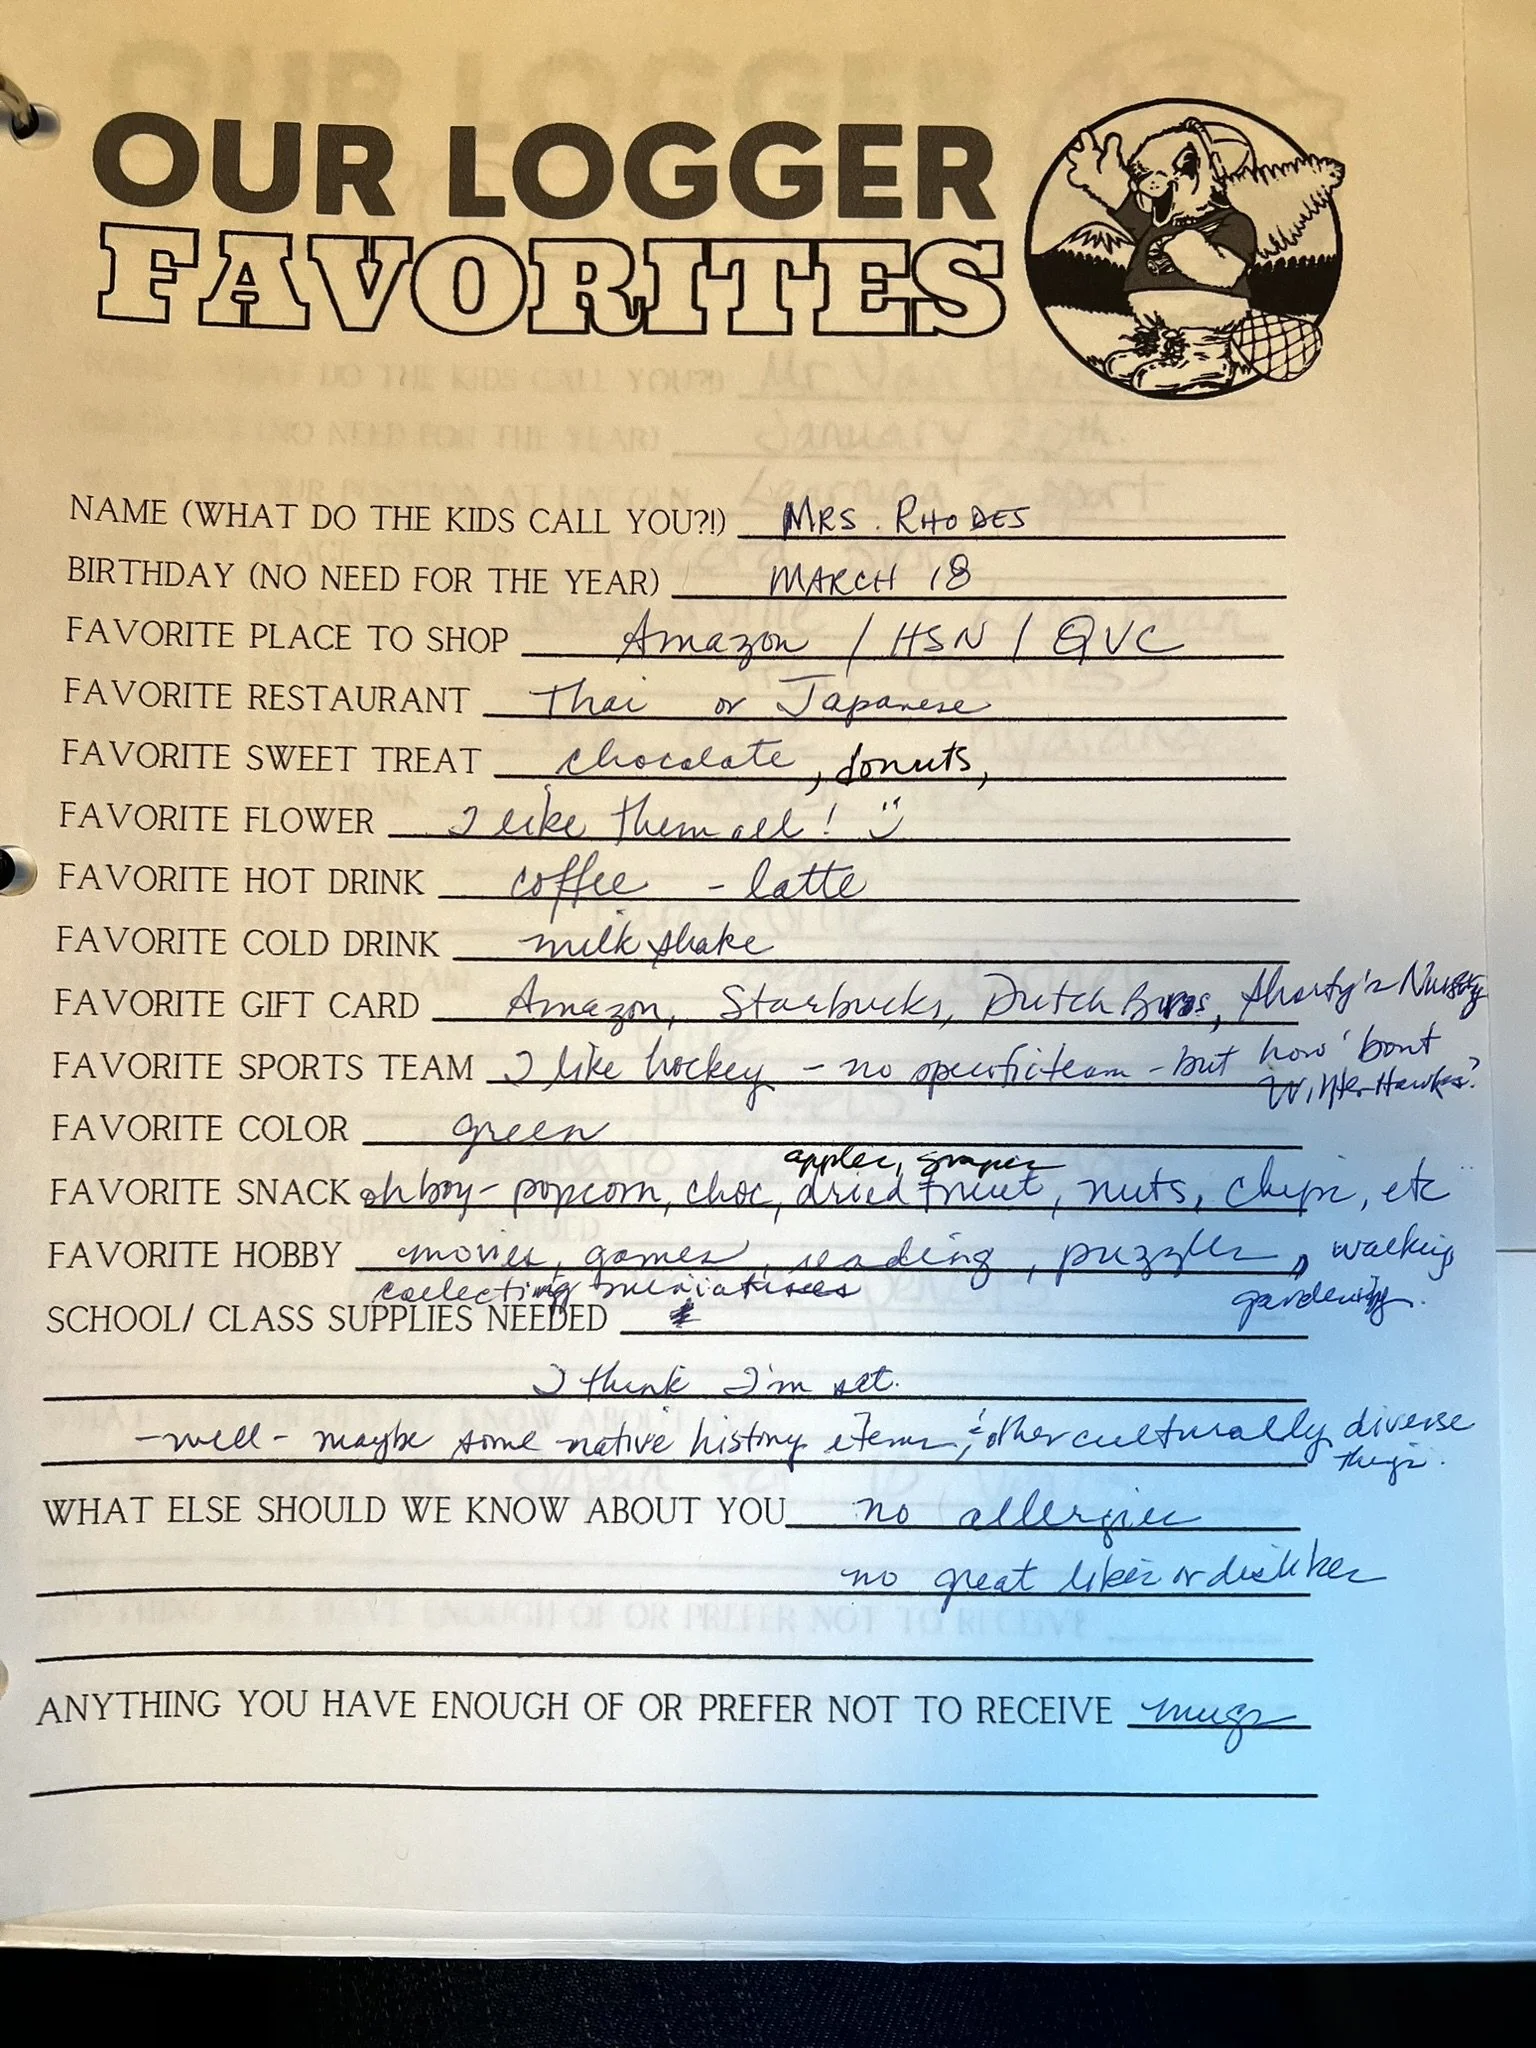 OUR LOGGER
FAVORITES
NAME (WHAT DO THE KIDS CALL YOU?!) MRS. RHODES
BIRTHDAY (NO NEED FOR THE YEAR) MARCH 18
FAVORITE PLACE TO SHOP Amazon / HSN / QVC
FAVORITE RESTAURANT Thai or Japanese
FAVORITE SWEET TREAT chocolate, donuts,
FAVORITE FLOWER I like them all!
FAVORITE HOT DRINK coffee - latte
FAVORITE COLD DRINK milk shake
FAVORITE GIFT CARD Amazon, Starbucks, Dutch Bros, Shorty's Nursery
FAVORITE SPORTS TEAM I like hockey - no specific team - but how 'bout
WinterHawks?
FAVORITE COLOR green
apples, grapes
FAVORITE SNACK oh boy - popcorn, choc, dried fruit, nuts, chips, etc
FAVORITE HOBBY movies, games, reading, puzzles, walking
collecting miniatures gardening.
SCHOOL/ CLASS SUPPLIES NEEDED
I think I'm set.
- well - maybe some native history items, & other culturally diverse
things.
WHAT ELSE SHOULD WE KNOW ABOUT YOU no allergies
no great likes or dislikes
ANYTHING YOU HAVE ENOUGH OF OR PREFER NOT TO RECEIVE mugs